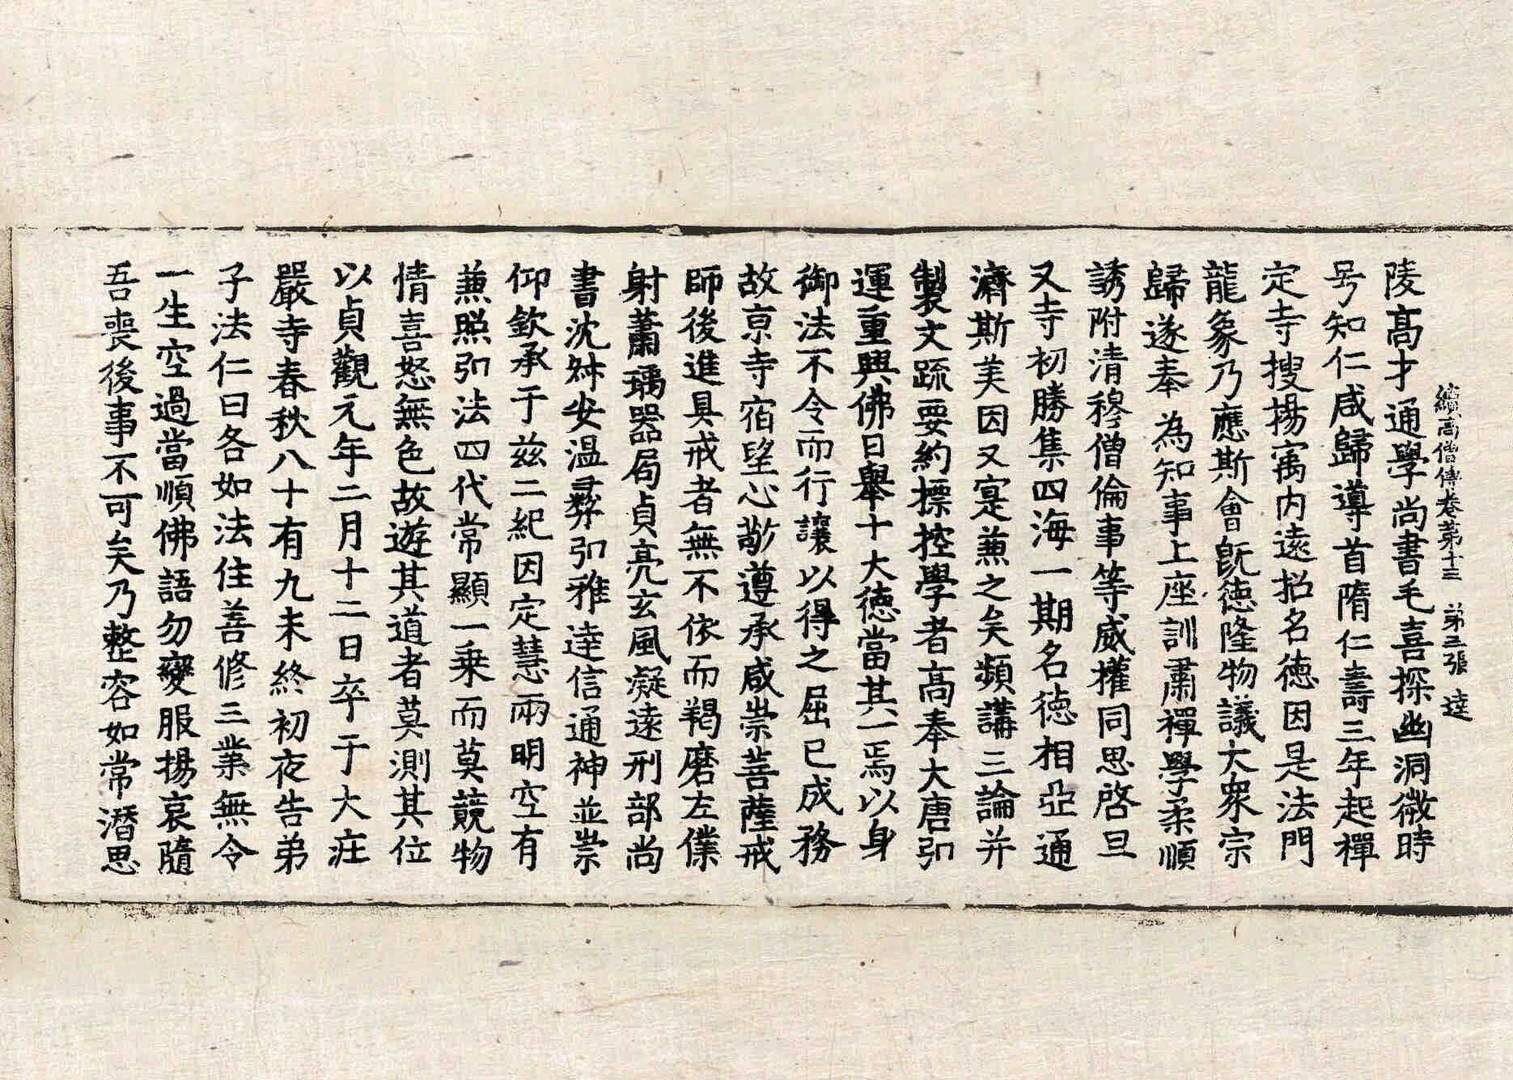 續高僧傳卷第十三　第三張　達
陵高才通學尚書毛喜探幽洞微時
号知仁咸歸導首隋仁壽三年起禪
定寺搜揚㝢内遠招名德因是法門
龍象乃應斯會旣德隆物議大衆宗
歸遂奉為知事上座訓肅禪學柔順
誘附清穆僧倫事等威權同思啓旦
又寺初勝集四海一期名德相亞通
濟斯美因又寔兼之矣頻講三論并
製文疏要約摽控學者高奉大唐弘
運重興佛日舉十大德當其一焉以身
御法不令而行讓以得之屈已成務
故京寺宿望心敬遵承咸崇菩薩戒
師後進具戒者無不依而羯磨左僕
射蕭瑀器局貞亮玄風凝遠刑部尚
書沈叔安温彛弘雅達信通神並崇
仰欽承于兹二紀因定慧兩明空有
兼照弘法四代常顯一乗而莫競物
情喜怒無色故遊其道者莫測其位
以貞觀元年二月十二日卒于大莊
嚴寺春秋八十有九未終初夜告弟
子法仁曰各如法住善修三業無令
一生空過當順佛語勿變服揚哀隨
吾喪後事不可矣乃整容如常潛思